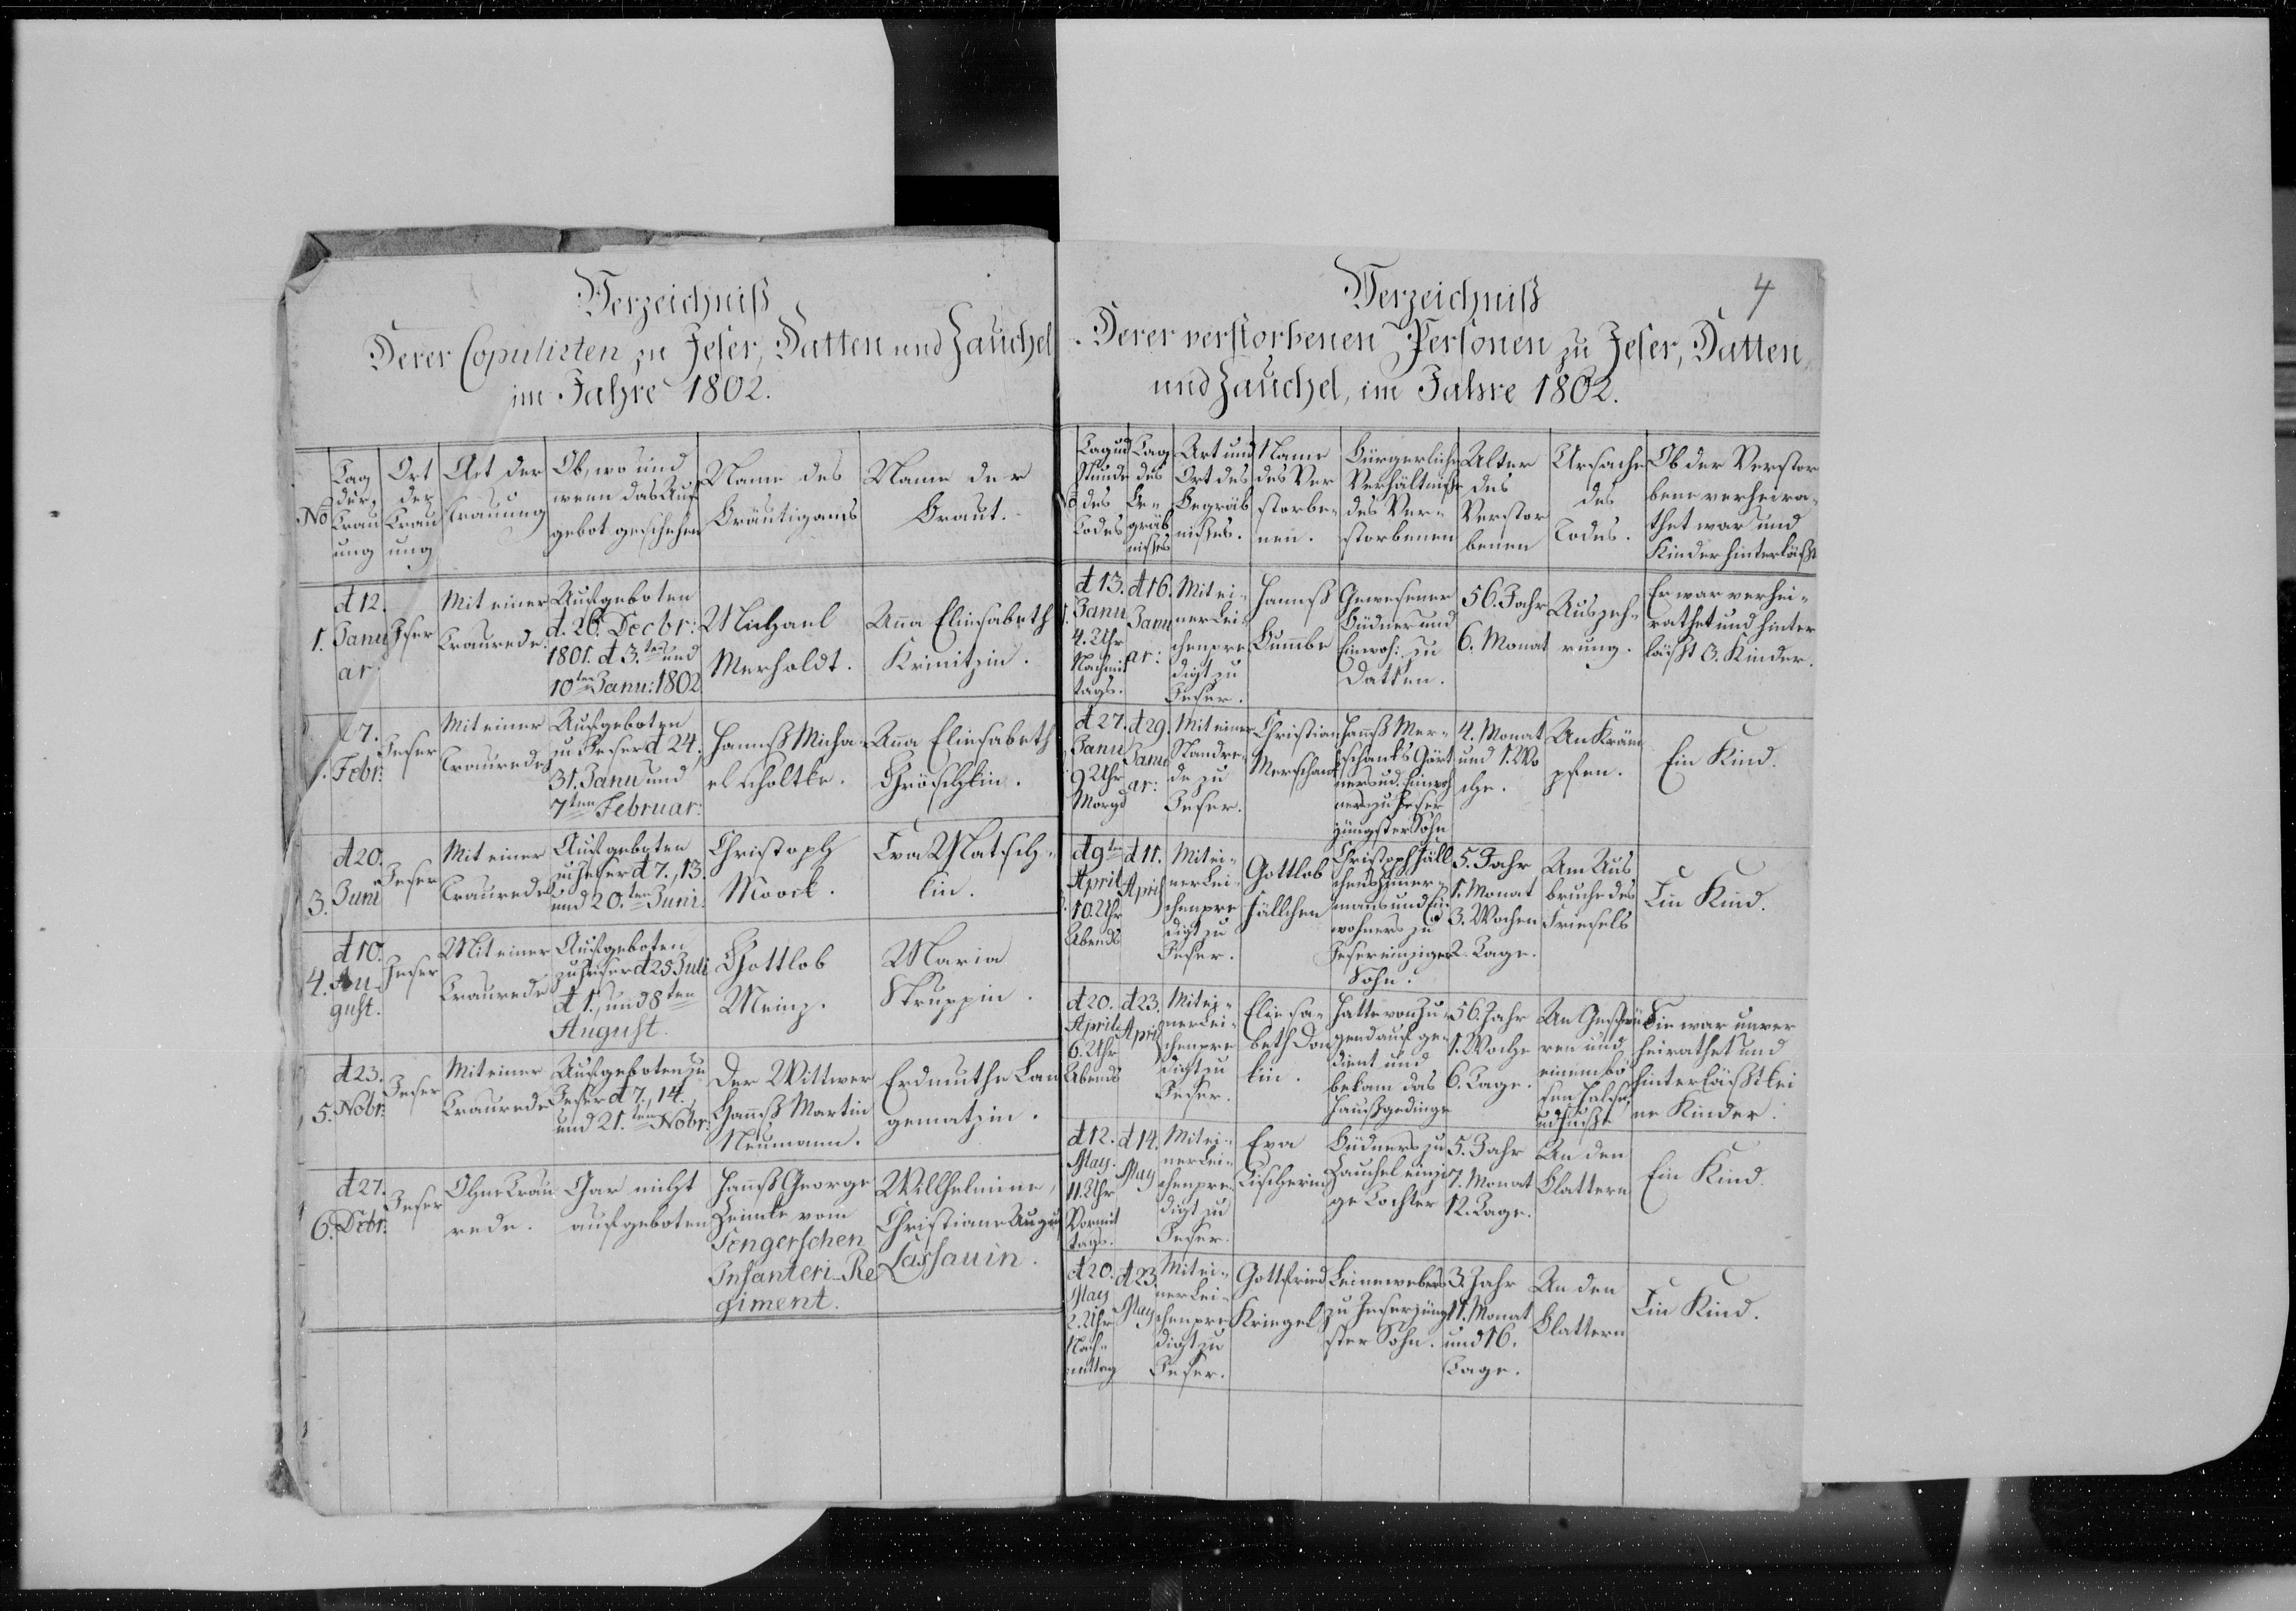 Verzeichniß
Derer Copulirten zu Jeser, Datten und Zauchel
im Jahre 1802.
No
Tag
der
Trau
ung
Ort
der
Trau
ung
Art der
Trauung
Ob, wo und
wenn das Auf
gebot geschehen
Name des
Bräutigams
Name der
Braut.
1.
d 12.
Janu
ar
Jeser
Mit einer
Traurede.
Aufgeboten
d. 26. Decbr:
1801. d 3.ten und
10ten Janu: 1802
Michael
Merholdt.
Aña Eliesabeth
Krinitzin.
7.
Febr:
Jeser
Mit einer
Traurede
Aufgeboten
zu Jeser d 24,
31. Janu und
7ten Februar:
Hannß Micha
el Scholtke.
Aña Eliesabeth
3.
d 20.
Juni
Jeser
Mit einer
Traurede
Aufgeboten
zu Jeser d 7., 13.
und 20.ten Juni.
Christoph
Moock.
Eva Matsch-
kin.
4.
d 10.
Au-
gust.
Jeser
Mit einer
Traurede
Aufgeboten
zu Jeser d 25 Juli
d 1., und 8ten
August.
Gottlob
Meinz.
Maria
Struppin.
5.
d 23.
Nobr:
Jeser
Mit einer
Traurede
Aufgeboten zu
Jeser d 7., 14.,
und 21.ten Nobr:
Der Wittwer
Hannß Martin
Neumann.
Erdmuthe Lan
gematzin.
6.
d 27.
Debr.
Jeser
Ohne Trau
rede.
Gar nicht
aufgeboten
Hannß George
Heinke vom
Tengerschen
Infanteri-Re
giment.
Willhelmine,
Christiane August
Lassauin.
4
Verzeichniß
Derer verstorbenen Personen zu Jeser, Datten,
und Zauchel, im Jahre 1802.
Tag und
Stunde
des
Todes
Tag
des
Be-
gräb
nisses
Art und
Ort des
Begräb
nisses.
Name
des Ver
storbe-
nen.
Bürgerliche
Verhältnisse
des Ver-
storbenen
Alter
des
Verstor
benen
Ursache
des
Todes.
Ob der Verstor
bene verheira-
thet war und
Kinder hinterläßt
1.
d 13.
Janu
4. Uhr
Nachmit
tags.
d 16.
Janu
ar:
Mit ei-
ner Lei-
chenpre
digt zu
Jeser.
Hannß
Bumbe
Gewesener
Büdner und
Einwoh: zu
Datten.
56. Jahr
6. Monat
Auszeh-
rung.
Er war verhei-
rathet und hinter
läßt 3. Kinder.
d 27.
Janu
9 Uhr
Morgs
d 29.
Janu
ar:
Mit einer
Standre-
de zu
Jeser.
Christian
Merschank
Hanß Mer-
schanks Gärt
ners und Einwoh
ners zu Jeser
jüngster Sohn
4. Monat
und 1. Wo
che.
An Kräm
pfen.
Ein Kind.
d 9ten
April
10. Uhr
Abends
d 11.
April
Mit ei-
ner Lei-
chenpre
digt zu
Jeser.
Gottlob
Fällchen
Christoph Fäll
chens Zimer-
manns und Ein
wohners zu
Jeser einziger
Sohn.
5. Jahr
1. Monat
3. Wochen
2. Tage.
Am Aus
bruche des
Friesels
Ein Kind.
d 20.
April
6. Uhr
Abends
d 23.
April
Mit ei-
ner Lei-
chenpre
digt zu
Jeser.
Eliesa-
beth Don
kin.
Hatte von Ju-
gend auf ge-
dient und
bekam das
Haußgedinge
56. Jahr
1. Woche
6. Tage.
An Geschwü
ren und
einem bö
sen Halse
Sie war unver
heirathet und
hinterläßt kei
ne Kinder.
d 12.
May.
11. Uhr
Vormit
tags.
d 14.
May
Mit ei-
ner Lei-
chenpre
digt zu
Jeser.
Eva
Tischerin
Büdners zu
Zauchel einzi
ge Tochter
5. Jahr
7. Monat
12. Tage.
An den
Blattern
Ein Kind.
d 20.
May
2. Uhr
Nach-
mittag
d 23.
May
Mit ei-
ner Lei-
chenpre
digt zu
Jeser.
Gottfried
Kriegel
Leinewebers
zu Jeser jüng
ster Sohn.
3. Jahr
11. Monat
und 16.
Tage.
An den
Blattern
Ein Kind.